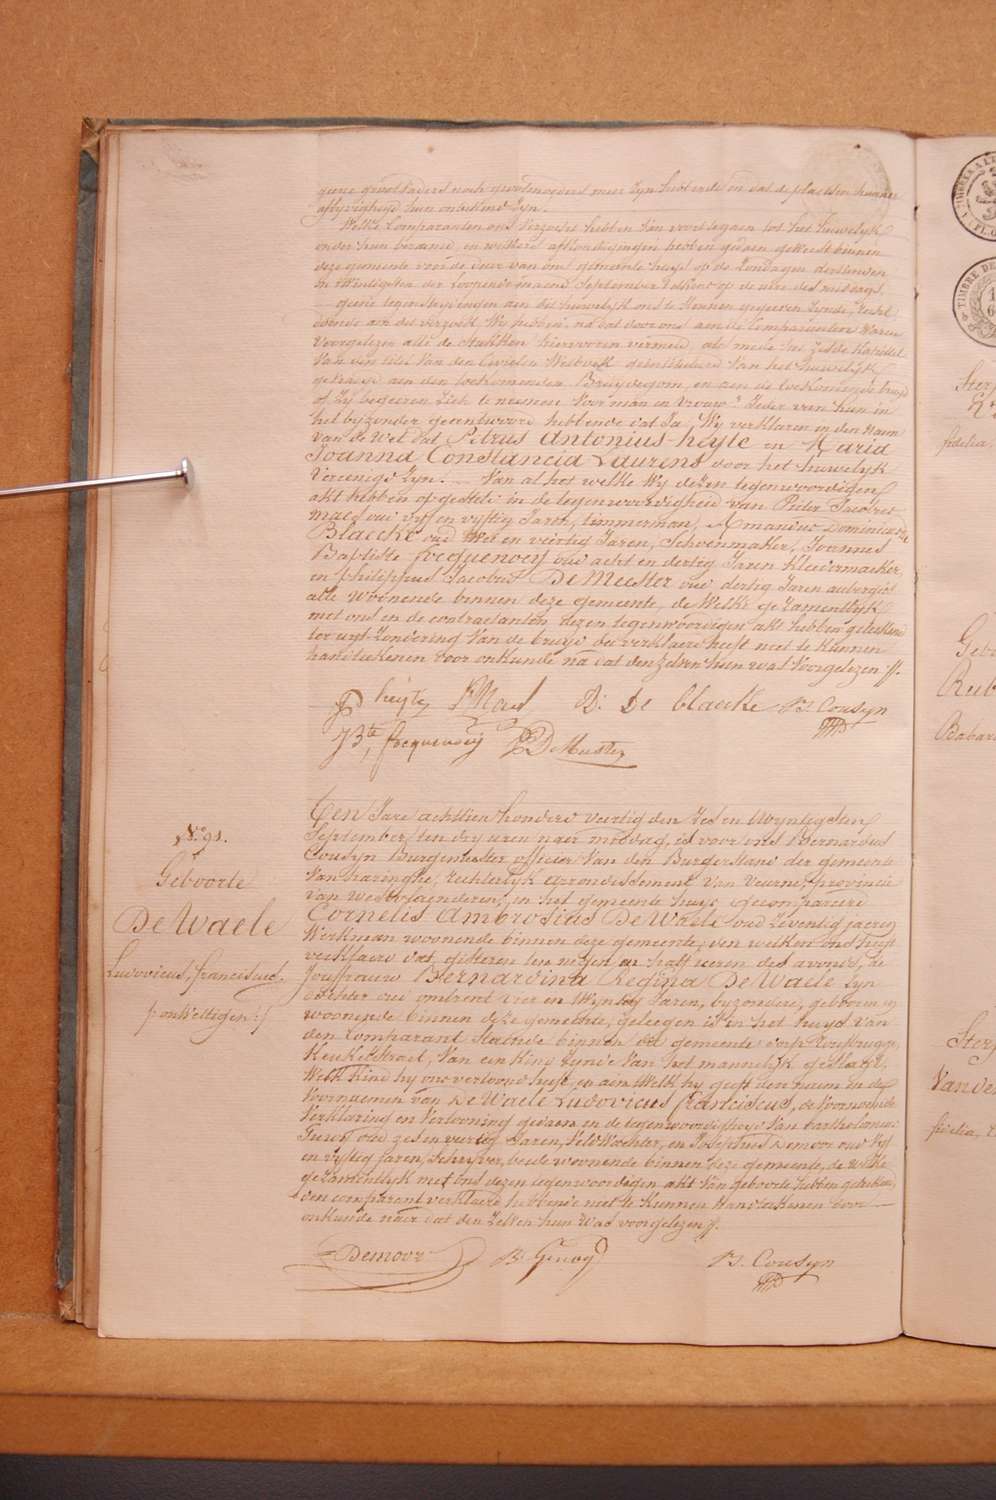 geene grootvaders noch grootmoeders meer zyn hebbende en dat de plaetsen hunner
aflyvigheyd hun onbekend zyn.
Welke Comparanten ons verzocht hebben van voort te gaen tot het huwelyk
onder hun beraemd, en welkers afkondigingen hebben gedaen geweest binnen
deze gemeente voor de deur van ons gemeente huys op de Zondagen derthienden
en twintigsten der loopende maend September telkens op de ure des middags.
geene tegenstrydigheden aen dit huwelyk ons te kennen gegeven zynde, recht
doende aen dit verzoek Wy hebben, na dat door ons aen de Comparanten Waren
Voorgelezen alle de stukken hiervooren vermeld, als mede het zesde Kapittel
Van den titel Van den Civielen Wetboek geintituleerd Van het huwelyk
gevraegd aen den toekomenden Bruydegom, en aen de toekomende bruyd
of Zy begeeren Zich te neemen Voor man en Vrouw? Jeder van hun in
het byzonder geantwoord hebbende dat Ja, Wy verklaren in den Naem
van de Wet dat Petrus Antonius heyte en Maria
Joanna Constancia Laurens door het huwelyk
Vereenigd Zyn. Van al het welke Wy dezen tegenwoordigen
akt hebben opgesteld in de tegenwoordigheid van Pieter Jacobus
Maes oud vyf en vyftig Jaren, timmerman, Amandus Dominicus De
Blaecke oud twee en veertig Jaren, Schoenmaker, Joannes
Baptiste focquenoey oud acht en dertig Jaren kleedermaeker,
en philippus Jacobus De Meester oud dertig Jaren aubergist
alle woonende binnen deze gemeente, de Welke gezamentlyk
met ons en de contractanten dezen tegenwoordigen akt hebben geteekend
ter uyt-zondering Van de bruyd die verklaerd heeft niet te kunnen
handteekenen door onkunde na dat den zelven hun was Voorgelezen //.
P heyte PMaes D: De blaecke B. Cousyn
J Bte focquenoey PJ DeMeester
N° 91.
Geboorte
De Waele
Ludovicus, franciscus.
/: onwettigen :/
Ten Jare achttien honderd veertig den Zes en twyntigsten
September, ten dry uren naer middag, is voor ons Bernardus
Cousyn Burgemeester officier Van den Burgerstand der gemeente
Van haringhe, rechterlyk arrondissement Van Veurne, provincie
van Westvlaenderen, in het gemeente huys Gecompareerd
Cornelis Ambrosius De Waele oud Zeventig jaeren
Werkman woonende binnen deze gemeente, den welken ons heeft
verklaerd dat, gisteren ten negen en half uren des avonds, de
Jouffrouw Bernardina Regina De Waele Zyn
dochter oud omtrent vier en twyntig Jaren, byzondere, geboren en
woonende binnen deze gemeente, gelegen is in het huys Van
den Comparant Staende binnen de gemeente dorp Rousbrugge,
Keukelstraet, Van een Kind Zynde Van het mannelyk geslacht,
Welk Kind hy ons vertoond heeft, en aen Welk hy geeft den naem en de
Voornaemen van De Waele Ludovicus franciscus, de Voornoemde
Verklaring en Vertooning gedaen en de tegenwoordigheyd Van Bartholomeus
oud zes en veertig Jaren, Veldwachter, en Josephus Demoor oud Vyf
en vyftig jaren, Schryver, beyde woonende binnen deze gemeente, de welke
gezamentlyk met ons dezen tegenwoordigen akt Van geboorte hebben geteekend
den comparent verklaerd hebbende niet te Kunnen Handteekenen door
onkunde naer dat den Zelven hun Was voorgelezen //.
Demoor B. B. Cousyn
TIMBRE
Geboo
Vande
fidelia,